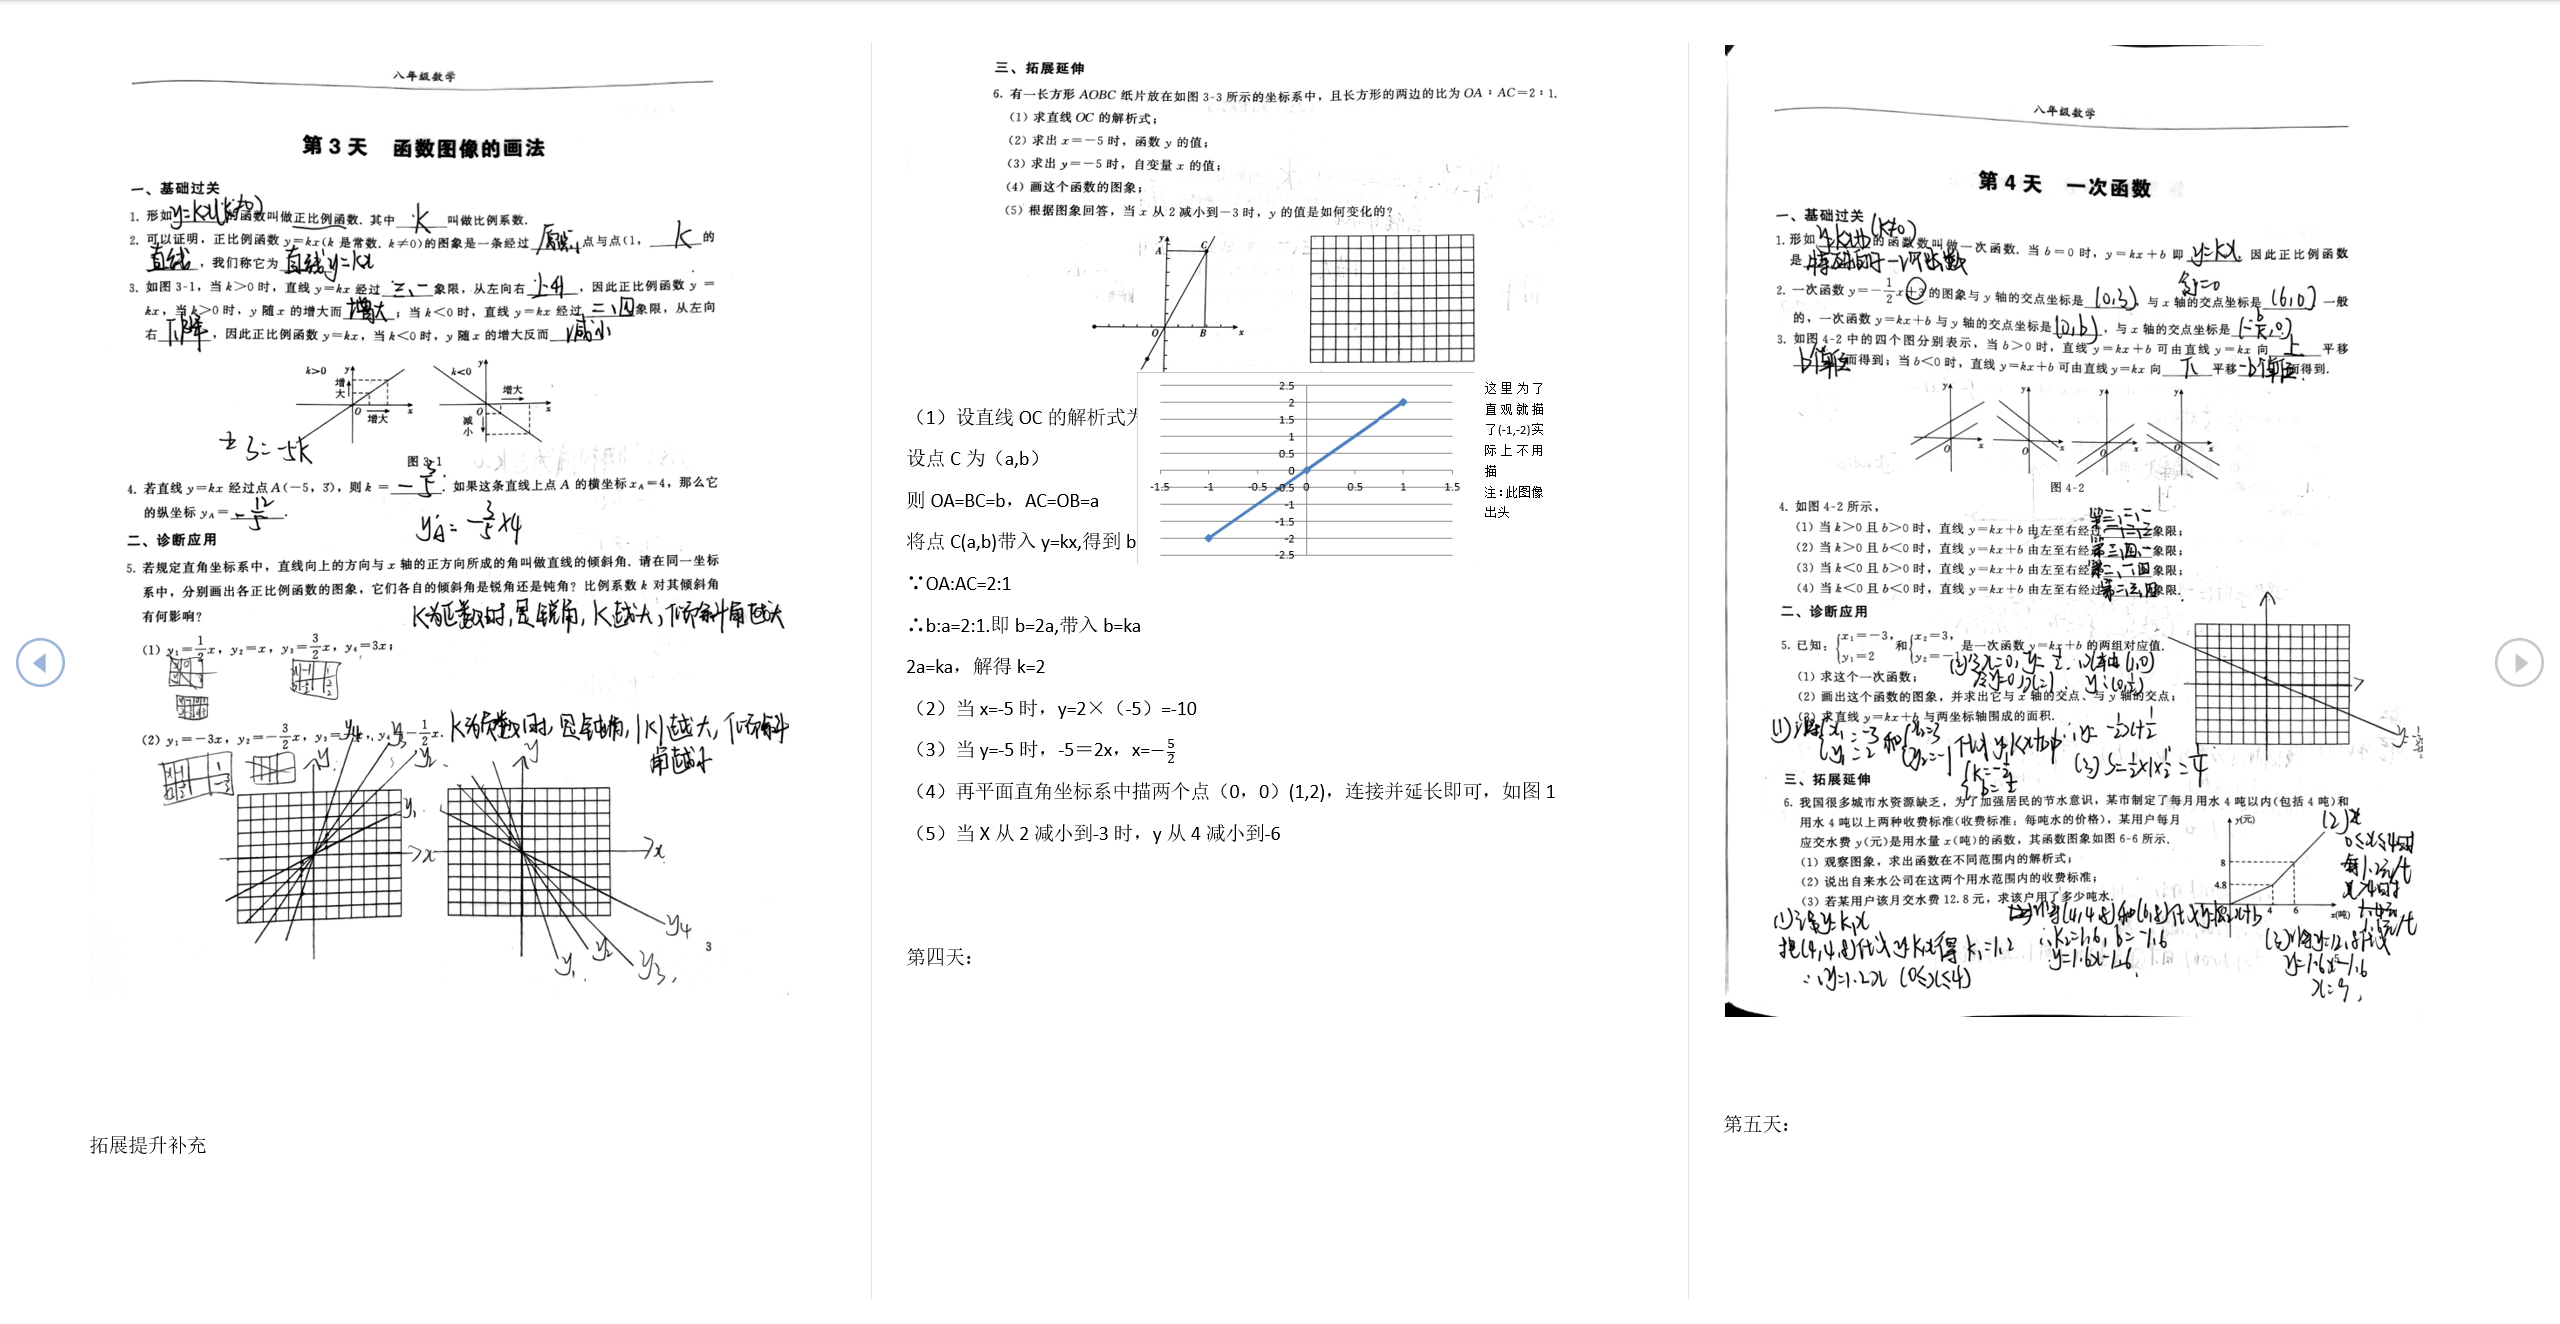 八年级数学
第3天 函数图像的画法
一、基础过关
1. 形如y=kx(k≠0)的函数叫做正比例函数. 其中 k 叫做比例系数.
2. 可以证明, 正比例函数 y=kx(k 是常数. k≠0)的图象是一条经过 原点 点与点(1, k 的
直线, 我们称它为 直线y=kx
3. 如图 3-1, 当 k>0 时, 直线 y=kx 经过 三、一 象限, 从左向右 上升, 因此正比例函数 y=
kx, 当 k>0 时, y 随 x 的增大而 增大; 当 k<0 时, 直线 y=kx 经过 二、四 象限, 从左向
右 下降, 因此正比例函数 y=kx, 当 k<0 时, y 随 x 的增大反而 减小
k>0 y 增大 O 增大 x
k<0 y 增大 O 减小 x
3=-5k
图 3-1
4. 若直线 y=kx 经过点 A(-5, 3), 则 k= -3/5. 如果这条直线上点 A 的横坐标 xA=4, 那么它
的纵坐标 yA= -12/5.
yA=-3/5×4
二、诊断应用
5. 若规定直角坐标系中, 直线向上的方向与 x 轴的正方向所成的角叫做直线的倾斜角. 请在同一坐标
系中, 分别画出各正比例函数的图象, 它们各自的倾斜角是锐角还是钝角? 比例系数 k 对其倾斜角
有何影响?
K为正数时, 是锐角, K越大, 倾斜角越大
(1) y1=1/2x, y2=x, y3=3/2x, y4=3x;
(2) y1=-3x, y2=-3/2x, y3=-x, y4=-1/2x.
K为负数时, 是钝角, |K|越大, 倾斜
角越小
y y4 y3 y2 y1 x
y x y1 y2 y3 y4
3
拓展提升补充
三、拓展延伸
6. 有一长方形 AOBC 纸片放在如图 3-3 所示的坐标系中, 且长方形的两边的比为 OA : AC=2 : 1.
(1) 求直线 OC 的解析式;
(2) 求出 x=-5 时, 函数 y 的值;
(3) 求出 y=-5 时, 自变量 x 的值;
(4) 画这个函数的图象;
(5) 根据图象回答, 当 x 从 2 减小到-3 时, y 的值是如何变化的?
y A C O B x
(1) 设直线 OC 的解析式为
设点 C 为 (a,b)
则 OA=BC=b, AC=OB=a
将点 C(a,b)带入 y=kx,得到 b
2.5
2
1.5
1
0.5
0
-0.5
-1
-1.5
-2
-2.5
-1.5 -1 -0.5 0 0.5 1 1.5
这里为了
直观就描
了(-1,-2)实
际上不用
描
注:此图像
出头
∵OA:AC=2:1
∴b:a=2:1.即 b=2a,带入 b=ka
2a=ka, 解得 k=2
(2) 当 x=-5 时, y=2×(-5)=-10
(3) 当 y=-5 时, -5=2x, x=-5/2
(4) 再平面直角坐标系中描两个点 (0, 0) (1,2), 连接并延长即可, 如图 1
(5) 当 X 从 2 减小到-3 时, y 从 4 减小到-6
第四天:
八年级数学
第4天 一次函数
一、基础过关
1. 形如 y=kx+b (k≠0) 的函数叫做一次函数. 当 b=0 时, y=kx+b 即 y=kx, 因此正比例函数
是 特殊的一次函数
令y=0
2. 一次函数 y=-1/2x+3 的图象与 y 轴的交点坐标是 (0,3), 与 x 轴的交点坐标是 (6,0) 一般
的, 一次函数 y=kx+b 与 y 轴的交点坐标是 (0,b), 与 x 轴的交点坐标是 (-b/k,0).
3. 如图 4-2 中的四个图分别表示, 当 b>0 时, 直线 y=kx+b 可由直线 y=kx 向 上 平移
b个单位 而得到; 当 b<0 时, 直线 y=kx+b 可由直线 y=kx 向 下 平移 -b个单位 而得到.
图 4-2
4. 如图 4-2 所示,
(1) 当 k>0 且 b>0 时, 直线 y=kx+b 由左至右经过 第三、二、一 象限;
(2) 当 k>0 且 b<0 时, 直线 y=kx+b 由左至右经过 第三、四、一 象限;
(3) 当 k<0 且 b>0 时, 直线 y=kx+b 由左至右经过 第二、一、四 象限;
(4) 当 k<0 且 b<0 时, 直线 y=kx+b 由左至右经过 第二、三、四 象限.
二、诊断应用
5. 已知: {x1=-3, y1=2 和 {x2=3, y2=-1 是一次函数 y=kx+b 的两组对应值.
(1) 求这个一次函数;
(2) 画出这个函数的图象, 并求出它与 x 轴的交点、与 y 轴的交点;
(3) 求直线 y=kx+b 与两坐标轴围成的面积.
(2) 当x=0, y=1/2. x轴 (1,0)
令y=0, x=1 y: (0,1/2)
(1) {x1=-3 y1=2 和 {x2=3 y2=-1 代入y=kx+b中 ∴y=-1/2x+1/2
{k=-1/2
b=1/2
(3) S=1/2×1×1/2=1/4
三、拓展延伸
6. 我国很多城市水资源缺乏, 为了加强居民的节水意识, 某市制定了每月用水 4 吨以内(包括 4 吨)和
用水 4 吨以上两种收费标准(收费标准: 每吨水的价格), 某用户每月
应交水费 y(元)是用水量 x(吨)的函数, 其函数图象如图 6-6 所示.
(1) 观察图象, 求出函数在不同范围内的解析式;
(2) 说出自来水公司在这两个用水范围内的收费标准;
(3) 若某用户该月交水费 12.8 元, 求该户用了多少吨水.
y(元) 8 4.8 4 6 x(吨)
(2) 0≤x≤4时
每1.2元/t
x>4时
1.6元/t
(1) 设y=k1x
把(4,4.8)代入y=k1x得k1=1.2
∴y=1.2x (0≤x≤4)
将(4,4.8)和(6,8)代入y=k2x+b
∴k2=1.6, b=-1.6
y=1.6x-1.6
(3) 将y=12.8代入
y=1.6x-1.6
x=9,
第五天: